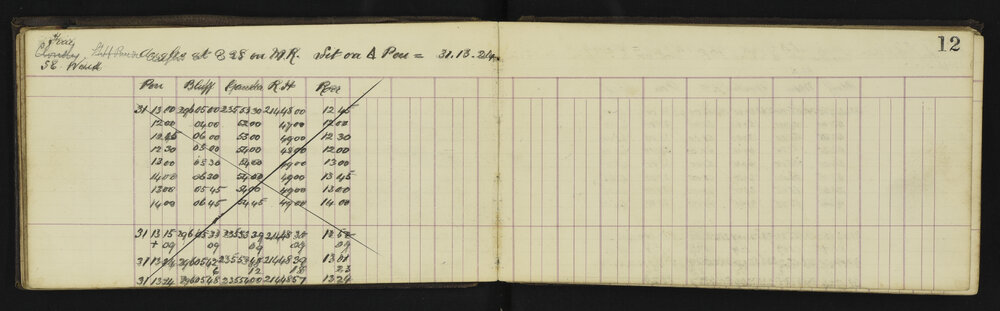 12
Angles at 398 on M.R. Set on Δ Pen = 31.13.24
SE Wind
Pen Bluff R.H
31 13 00 296 05 00 235 53 30 214 48 00 12 45
12 00 04 00 52 00 47 00 12 00
12 45 06 00 53 00 49 00 12 30
12 30 05 00 54 00 48 00 12 00
13 00 05 30 54 00 49 00 13 00
14 00 06 30 54 00 49 00 13 45
13 00 05 45 54 00 49 00 13 00
14 00 06 45 54 45 49 00 14 00
31 13 15 296 05 33 235 53 39 214 48 30 12 52
+ 09 09 09 09 09
31 13 24 296 05 42 235 53 48 214 48 39 13 01
6 12 18 23
31 13 24 296 05 48 235 54 00 214 48 57 13 24